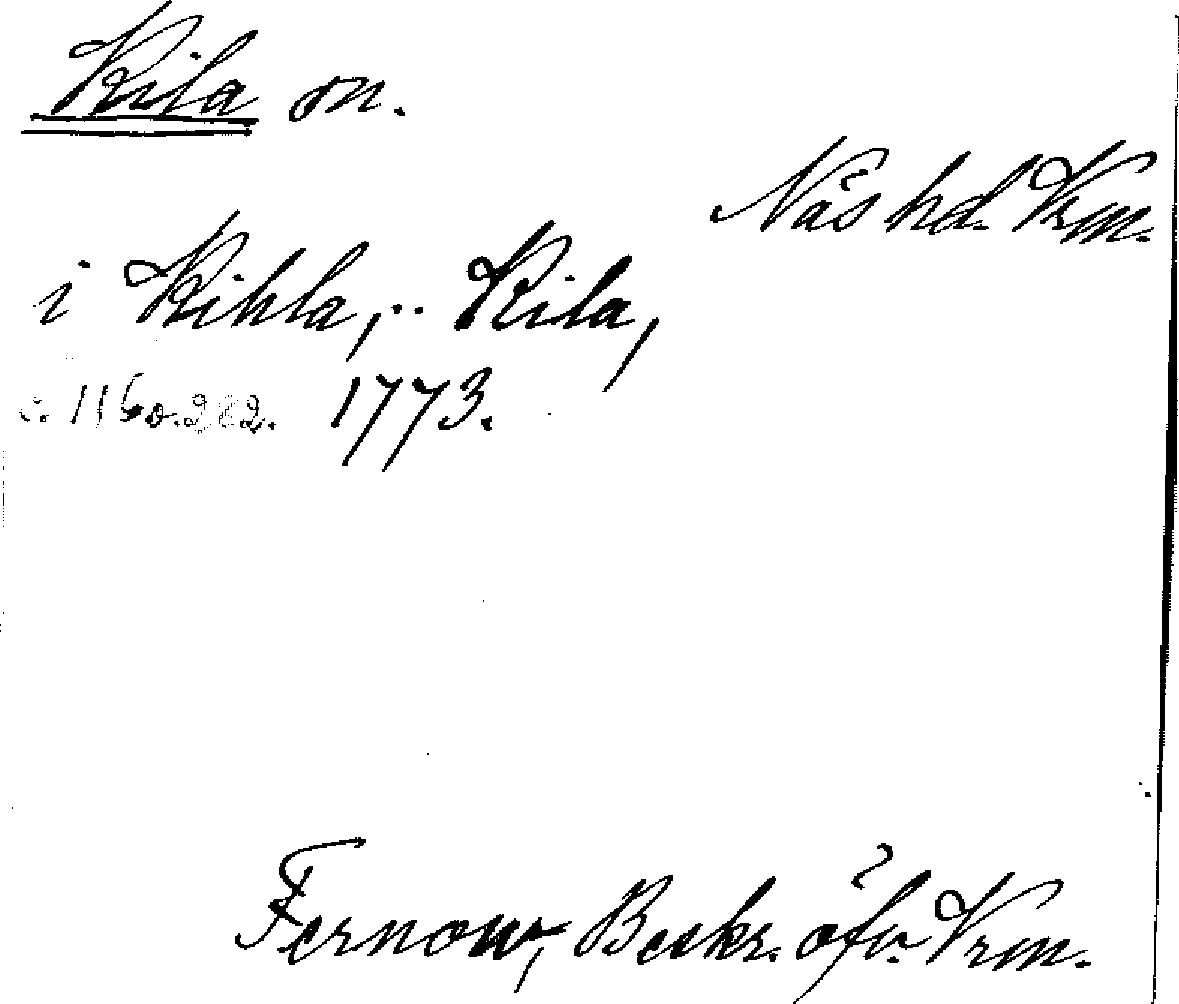 Kila sn.
Näs hd. Vrm.
i Kihla, .. Kila,
s. 116 o. 282. 1773.
Fernow, Beskr. öfv. Vrm.